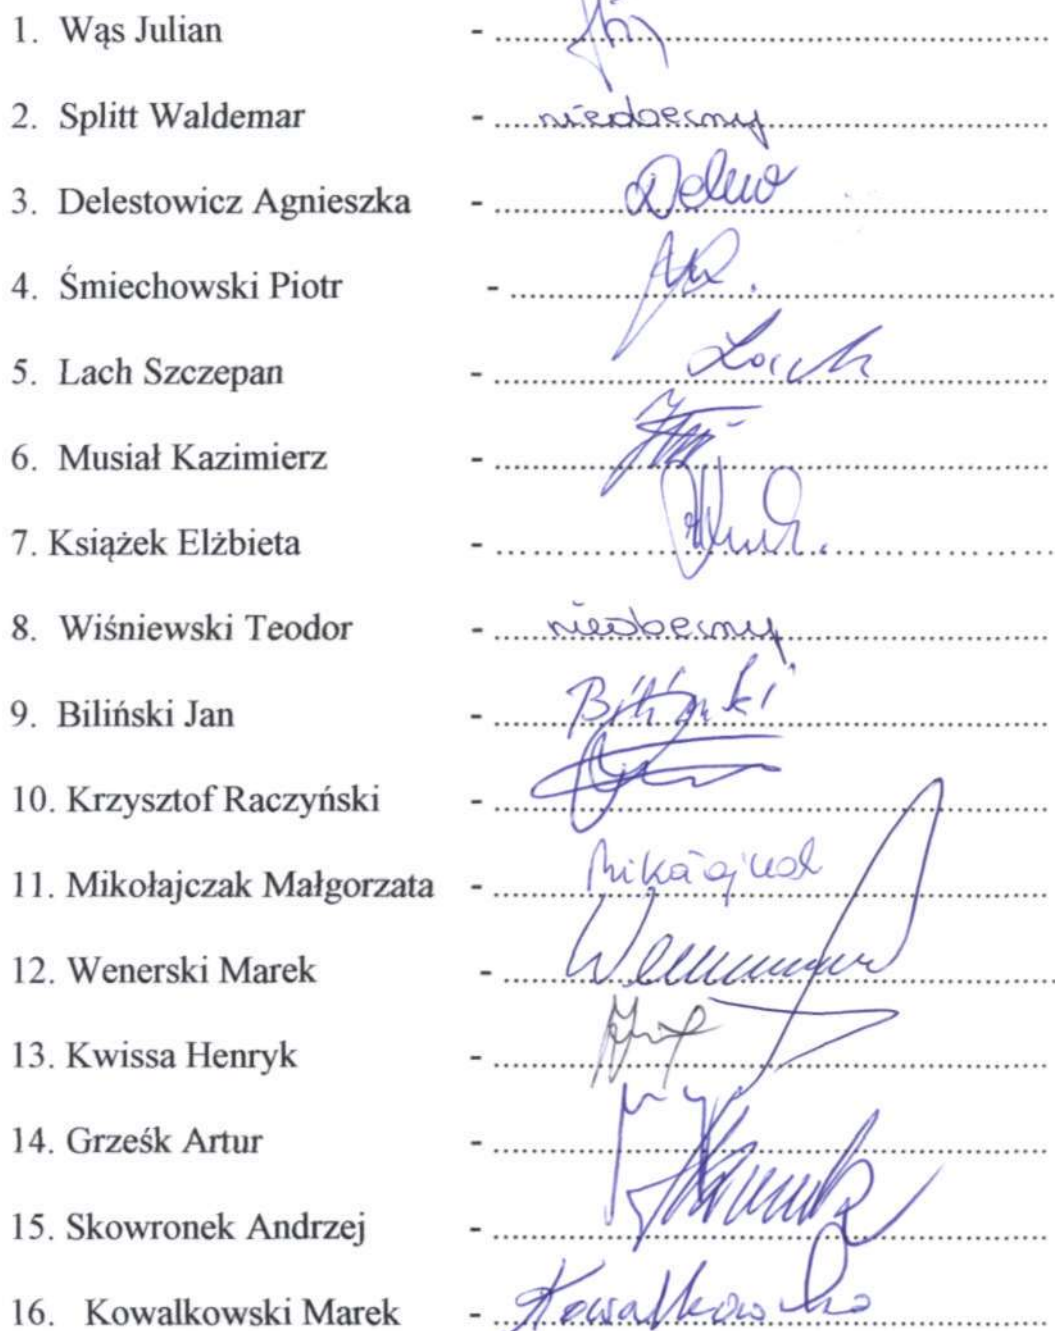 1. Wąs Julian - ........................
2. Splitt Waldemar - nieobecny
3. Delestowicz Agnieszka - ........................
4. Śmiechowski Piotr - ........................
5. Lach Szczepan - Lach
6. Musiał Kazimierz - ........................
7. Książek Elżbieta - ........................
8. Wiśniewski Teodor - nieobecny
9. Biliński Jan - Biliński
10. Krzysztof Raczyński - ........................
11. Mikołajczak Małgorzata - ........................
12. Wenerski Marek - ........................
13. Kwissa Henryk - ........................
14. Grześk Artur - ........................
15. Skowronek Andrzej - ........................
16. Kowalkowski Marek - ........................